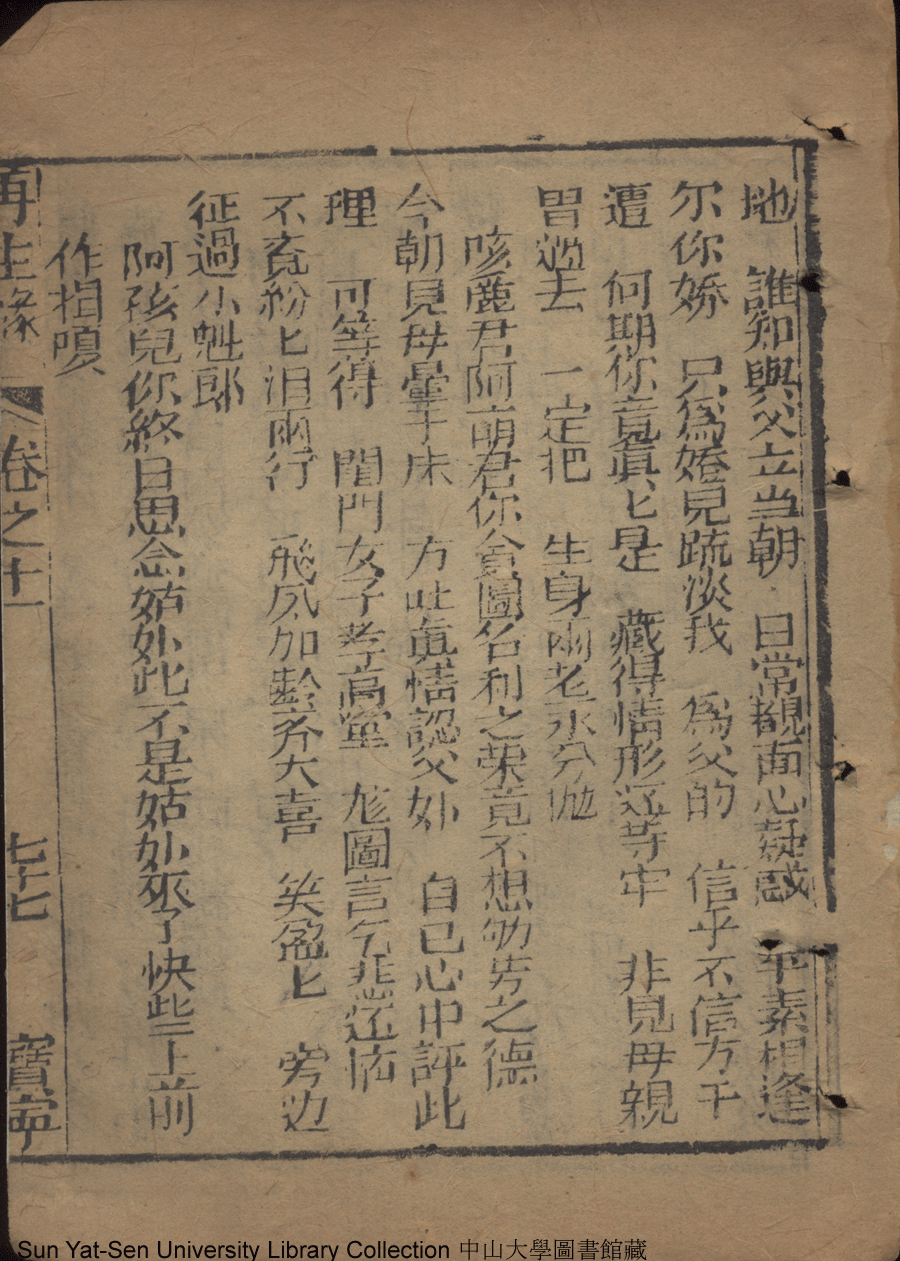 地　誰知與父立当朝　日常覩面心疑惑　平素相逢
尔你娇　只為嬌兒疏淡我　為父的　信乎不信方千
遭　何期你竟眞匕是　藏得情形这等牢　非見母親
冒過去　一定把　生身兩老永分抛
咳麗君阿萌君你貪圖名利之荣竟不想劬劳之德
今朝見母暈于床　方吐眞情認父娘　自己心中評此
理　可笑得　閨門女子孝高堂　龙圖言乞悲还恼
不竟紛匕泪兩行　飛凤加齡齐大喜　笑盈匕　旁边
征過小魁郎
阿孩兒你終日思念姑娘此不是姑娘來了快些上前
作揖嗄
再生緣　卷之十一　七十七　寶寧
Sun Yat-Sen University Library Collection 中山大學圖書館藏